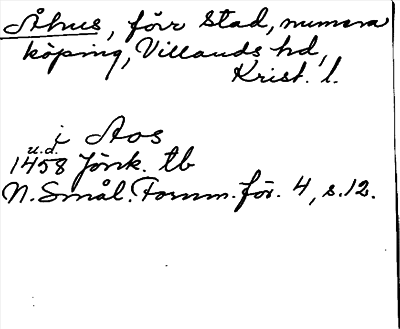 Åhus, förr stad, numera
köping, Villands hd,
Krist. l.
i Aos
u.d.
1458 Jönk. tb
N. Smål. Fornm. för. 4, s. 12.